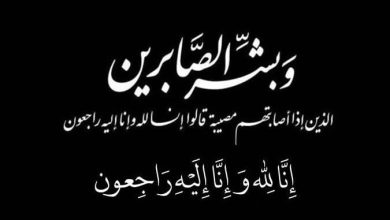 وَبَشِّرِ الصَّابِرين
الذين إذا أصابتهم مصيبة قالوا إنا لله وإنا إليه راجعون
إِنَّا لِلّٰهِ وَ إِنَّا إِلَيْهِ رَاجِعون